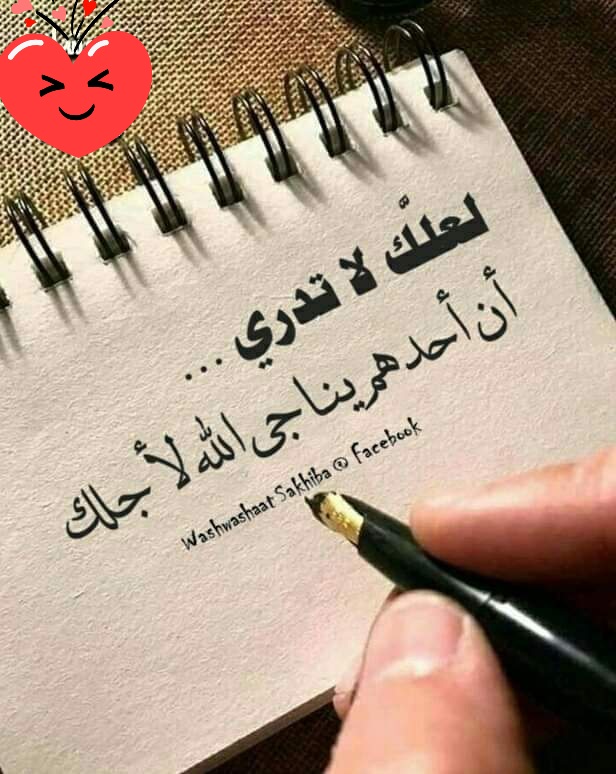 لعلَّك لا تدري ...
أن أحدهم يناجى الله لأجلك
Washwashaat Sakhiba @ Facebook